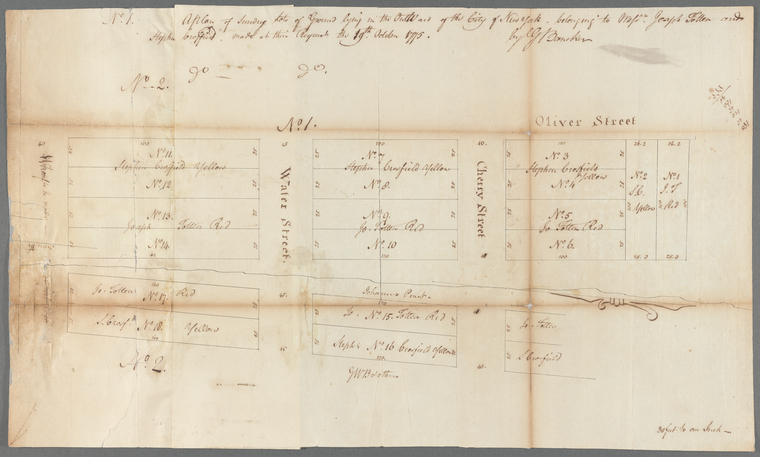 No. 1. A plan of Sundry Lots of Ground lying in the Outward of the City of New York - belonging to Messrs. Joseph Totten and
Stephen Crosfield made at their Request the 19th October 1775. by G Bancker
No. 2. do do.
No. 1.
Oliver Street
Water Street.
Cherry Street
100
No. 11.
Stephen Crosfield Yellow
No. 12.
No. 13.
Joseph Totten Red
No. 14.
100
No. 7
Stephen Crosfield Yellow
No. 8.
No. 9.
Jo. Totten Red
No. 10
100
100
No. 3
Stephen Crosfield
Yellow
No. 4
No. 5
Jo. Totten Red
No. 6
100
26.2 26.2
No. 2 No. 1
S.C. J.T
Yellow Red
26.2 26.2
Jo. Totten Red
No. 17.
S. Crosfd. No. 18. Yellow
No. 2.
Johannes
Jo. No. 15. Totten Red
Stephn No. 16 Crosfield Yellow
100
Jo. Totten
S. Crosfield
30 feet to an Inch